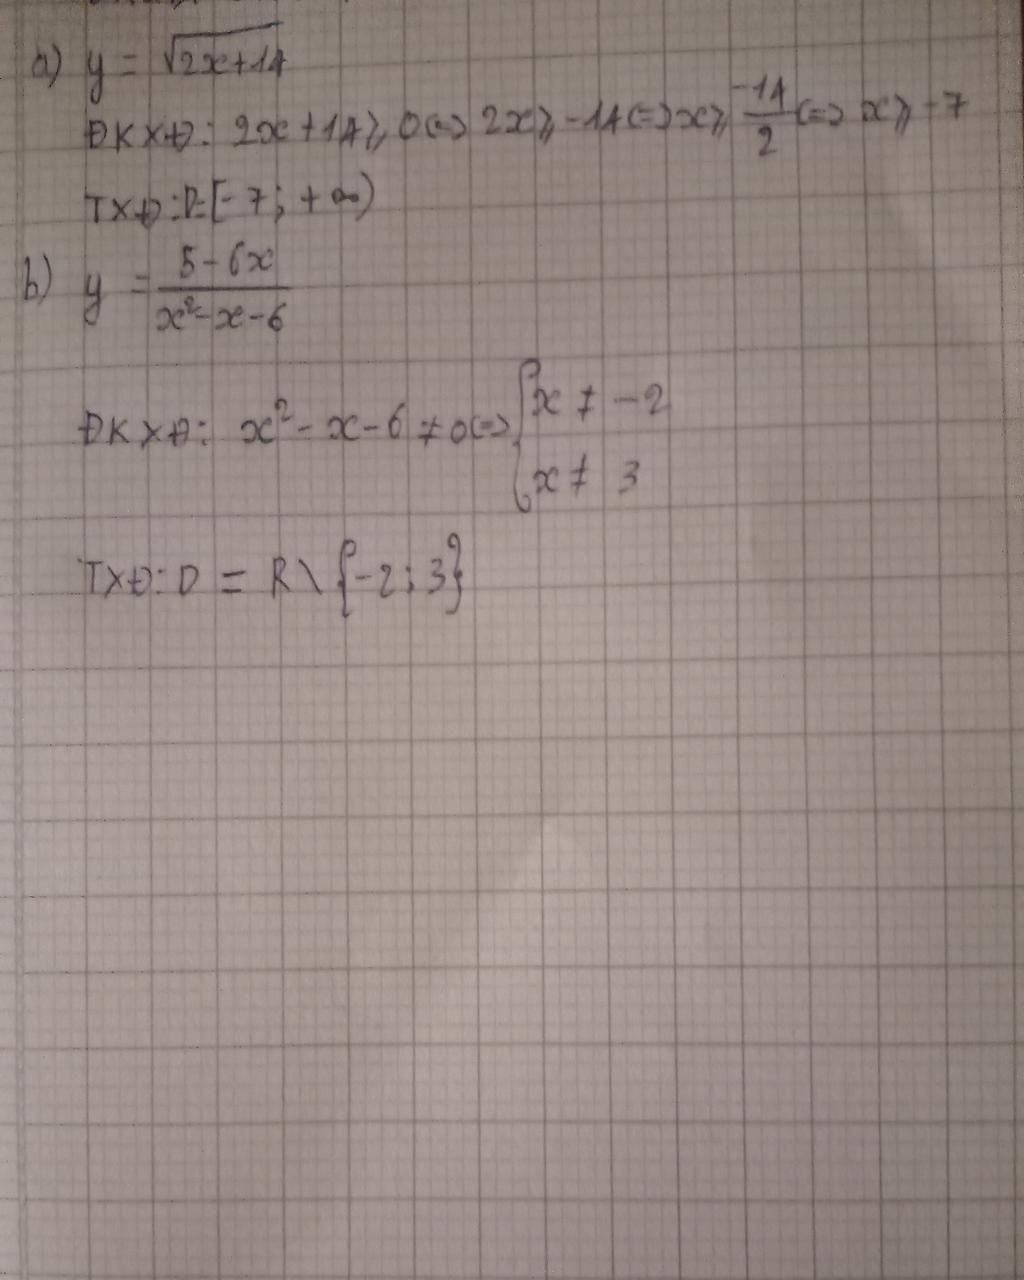 a) y = √2x+14
ĐKXĐ: 2x+14⩾0<=>2x⩾-14<=>x⩾-14/2<=>x⩾-7
TXĐ:D=[-7;+∞)
b) y = 5-6x/x²-x-6
ĐKXĐ: x²-x-6≠0<=>{x ≠ -2
x ≠ 3
TXĐ:D = R\{-2;3}